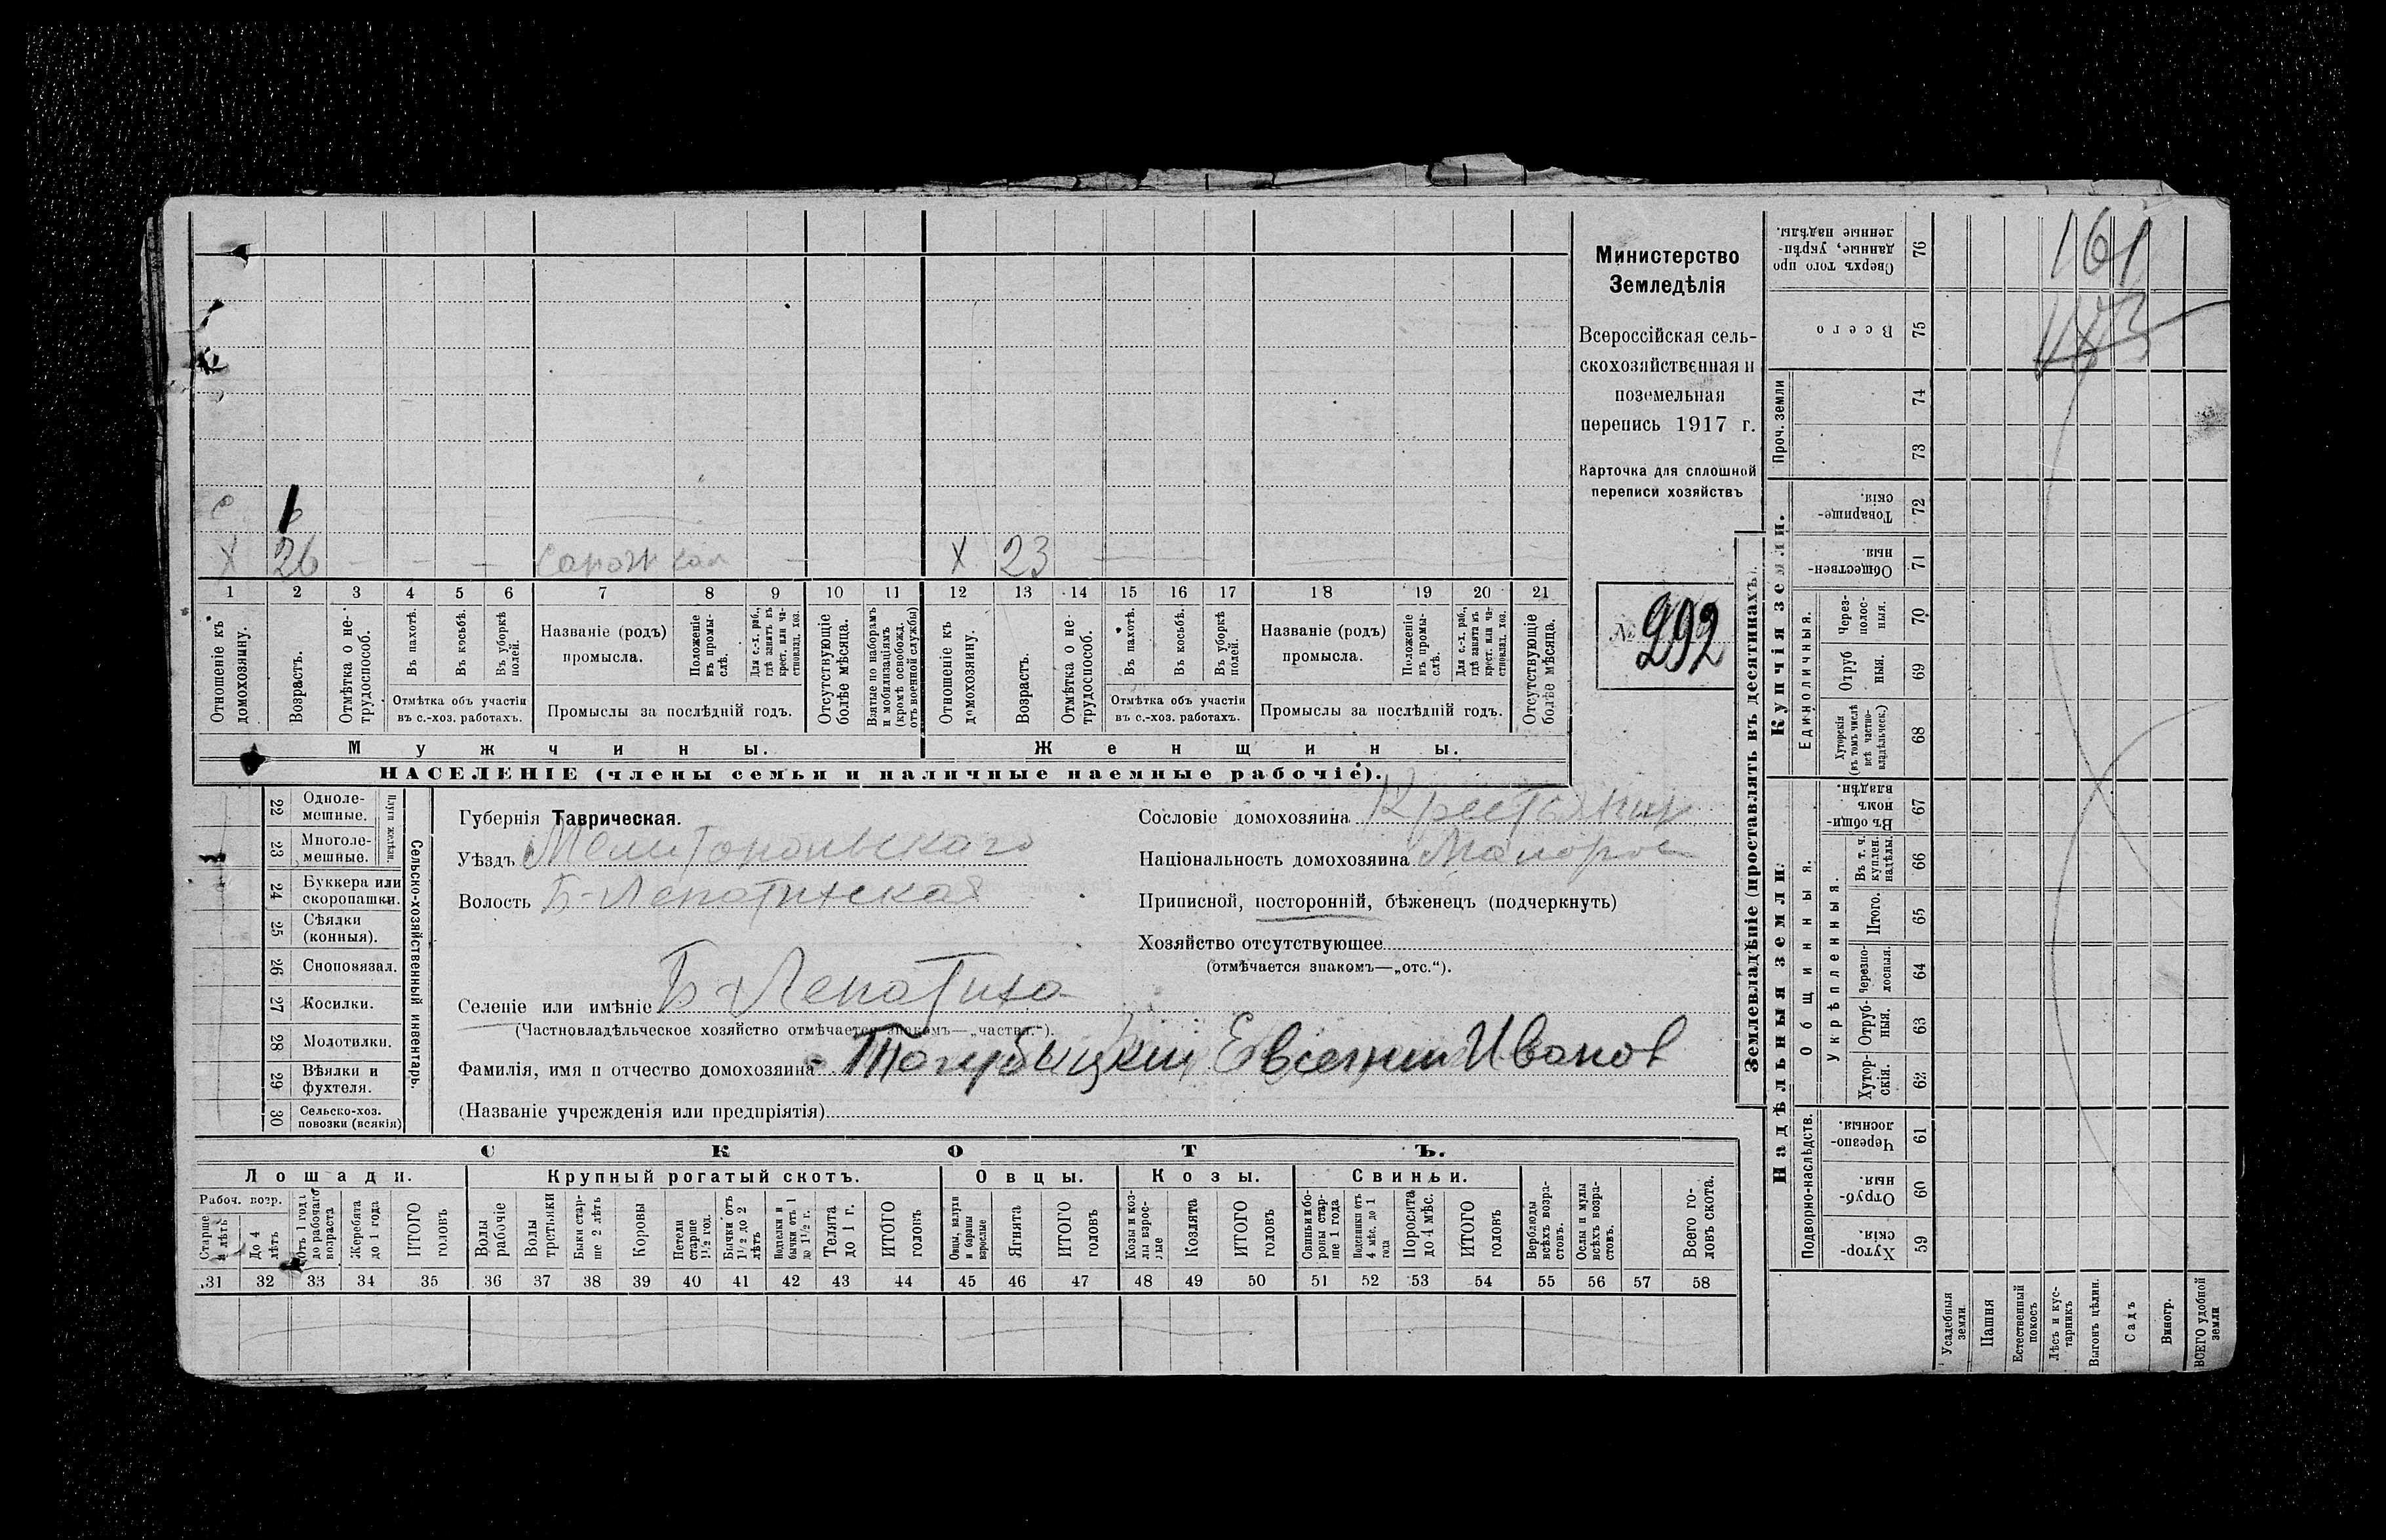 с 1
х 26 — — — сапож хоз — х 23 — — —
1 2 3 4 5 6 7 8 9 10 11 12 13 14 15 16 17 18 19 20 21
Отношеніе къ домохозяину.
Возрастъ.
Отмѣтка о не-трудоспособ.
Въ пахотѣ.
Въ косьбѣ.
Въ уборкѣ полей.
Отмѣтка объ участіи
въ с.-хоз. работахъ.
Названіе (родъ)
промысла.
Положеніе въ промы-слѣ.
Для с.-х. раб., гдѣ занятъ въ крест. или ча-стновлад. хоз.
Промыслы за послѣдній годъ.
Отсутствующіе болѣе мѣсяца.
Взятые по наборамъ и мобилизаціямъ (кромѣ освобожд. отъ военной службы)
Отношеніе къ домохозяину.
Возрастъ.
Отмѣтка о не-трудоспособ.
Въ пахотѣ.
Въ косьбѣ.
Въ уборкѣ полей.
Отмѣтка объ участіи
въ с.-хоз. работахъ.
Названіе (родъ)
промысла.
Положеніе въ промы-слѣ.
Для с.-х. раб., гдѣ занята въ крест. или ча-стновлад. хоз.
Промыслы за послѣдній годъ.
Отсутствующіе болѣе мѣсяца.
Мужчины. Женщины.
НАСЕЛЕНІЕ (члены семьи и наличные наемные рабочіе).
Министерство
Земледѣлія
Всероссійская сель-
скохозяйственная и
поземельная
перепись 1917 г.
Карточка для сплошной
переписи хозяйствъ
№ 292
Сельско-хозяйственный инвентарь.
Плуги желѣз.
22 Одноле-мешные.
23 Многоле-мешные.
24 Буккера или скоропашки.
25 Сѣялки (конныя).
26 Сноповязал.
27 Косилки.
28 Молотилки.
29 Вѣялки и фухтеля.
30 Сельско-хоз. повозки (всякія)
Губернія Таврическая.
Уѣздъ Мелитопольскаго
Волость Б-Лепатихская
Селеніе или имѣніе Б-Лепатиха
(Частновладѣльческое хозяйство отмѣчается знакомъ—„частн.“).
Сословіе домохозяина Крестьянин
Національность домохозяина Малорос
Приписной, посторонній, бѣженецъ (подчеркнуть)
Хозяйство отсутствующее
(отмѣчается знакомъ—„отс.“).
Фамилія, имя и отчество домохозяина Евсений Иванов
(Названіе учрежденія или предпріятія)
СКОТЪ.
Лошади. Крупный рогатый скотъ. Овцы. Козы. Свиньи.
Рабоч. возр.
Старше 4 лѣтъ
До 4 лѣтъ
Отъ 1 года до рабочаго возраста
Жеребята до 1 года
ИТОГО головъ
Волы рабочіе
Волы третьяки
Быки стар-ше 2 лѣтъ
Коровы
Нетели старше 1½ год.
Бычки отъ 1½ до 2 лѣтъ
Подтелки и бычки отъ 1 до 1½ г.
Телята до 1 г.
ИТОГО головъ
Овцы, валухи и бараны взрослые
Ягнята
ИТОГО головъ
Козы и коз-лы взрос-лые
Козлята
ИТОГО головъ
Свиньи и бо-ровы стар-ше 1 года
Подсвинки отъ 4 мѣс. до 1 года
Поросята до 4 мѣс.
ИТОГО головъ
Верблюды всѣхъ возра-стовъ.
Ослы и мулы всѣхъ возра-стовъ.
Всего го-ловъ скота.
31 32 33 34 35 36 37 38 39 40 41 42 43 44 45 46 47 48 49 50 51 52 53 54 55 56 57 58
Землевладѣніе (проставлять въ десятинахъ).
Купчія земли.
Надѣльныя земли.
76 Сверхъ того про-данные, укрѣп-ленные надѣлы.
75 Всего
Проч. земли
74
73
72 Товарище-скія.
71 Обществен-ныя.
Единоличныя.
70 Через-полос-ныя.
69 Отруб-ныя.
68 Хуторскія (въ томъ числѣ всѣ частно-владѣльческ.)
67 Въ общи-номъ владѣн.
Общинныя.
Укрѣпленныя.
66 Въ т. ч. куплен. надѣлы.
65 Итого.
64 Черезпо-лосныя.
63 Отруб-ныя.
62 Хутор-скія.
Подворно-наслѣдств.
61 Черезпо-лосныя.
60 Отруб-ныя.
59 Хутор-скія.
Усадебныя земли.
Пашня
Естественный покосъ
Лѣсъ и кус-тарникъ
Выгонъ цѣлин.
Садъ
Виногр.
ВСЕГО удобной земли
161